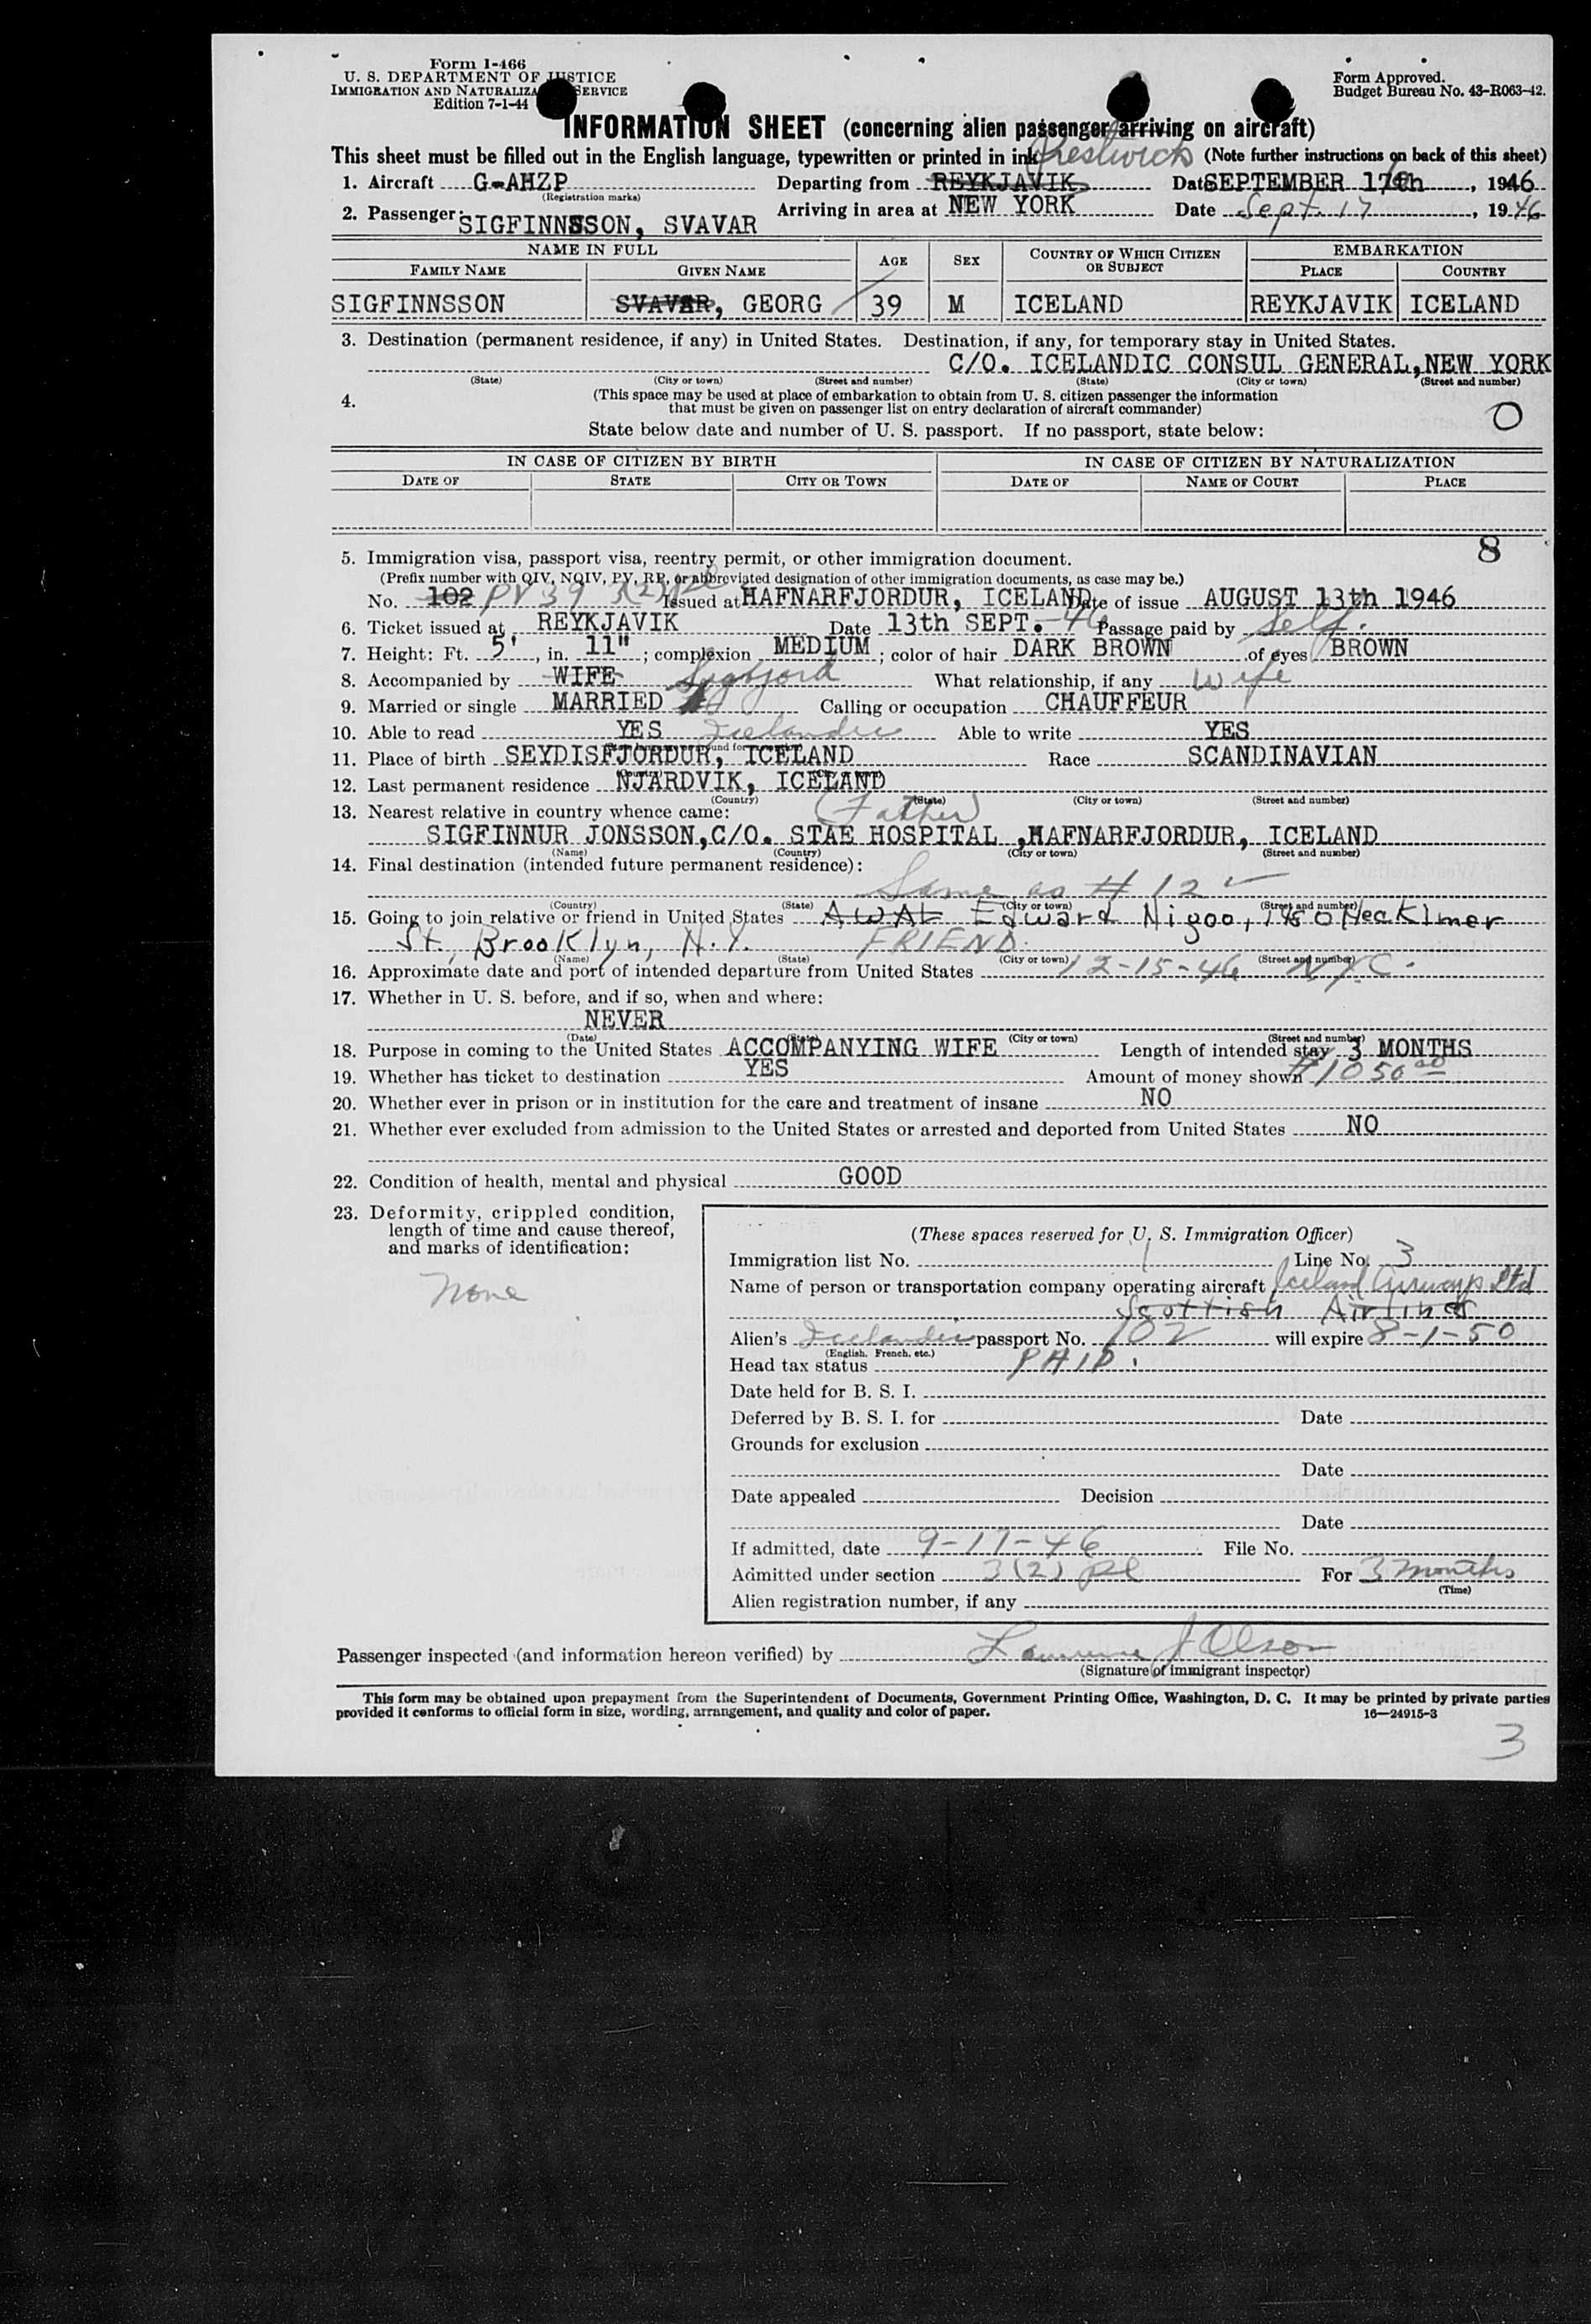 Form I-466
U. S. DEPARTMENT OF JUSTICE
IMMIGRATION AND NATURALIZATION SERVICE
Edition 7-1-44
Form Approved.
Budget Bureau No. 43-R063-42.
INFORMATION SHEET (concerning alien passenger arriving on aircraft)
This sheet must be filled out in the English language, typewritten or printed in ink. Prestwick (Note further instructions on back of this sheet)
1. Aircraft G-AHZP Departing from REYKJAVIK Date SEPTEMBER 17th, 1946
(Registration marks)
2. Passenger: SIGFINNSSON, SVAVAR Arriving in area at NEW YORK Date Sept. 17, 1946
NAME IN FULL AGE SEX COUNTRY OF WHICH CITIZEN OR SUBJECT EMBARKATION
FAMILY NAME GIVEN NAME PLACE COUNTRY
SIGFINNSSON SVAVAR, GEORG 39 M ICELAND REYKJAVIK ICELAND
3. Destination (permanent residence, if any) in United States. Destination, if any, for temporary stay in United States.
C/O. ICELANDIC CONSUL GENERAL, NEW YORK
(State) (City or town) (Street and number) (State) (City or town) (Street and number)
4. (This space may be used at place of embarkation to obtain from U. S. citizen passenger the information
that must be given on passenger list on entry declaration of aircraft commander)
O
State below date and number of U. S. passport. If no passport, state below:
IN CASE OF CITIZEN BY BIRTH IN CASE OF CITIZEN BY NATURALIZATION
DATE OF STATE CITY OR TOWN DATE OF NAME OF COURT PLACE
8
5. Immigration visa, passport visa, reentry permit, or other immigration document.
(Prefix number with QIV, NQIV, PV, RP, or abbreviated designation of other immigration documents, as case may be.)
No. 102 PV 39 3(2) Issued at HAFNARFJORDUR, ICELAND Date of issue AUGUST 13th 1946
6. Ticket issued at REYKJAVIK Date 13th SEPT. -46 Passage paid by Self.
7. Height: Ft. 5', in. 11"; complexion MEDIUM; color of hair DARK BROWN of eyes BROWN
8. Accompanied by WIFE What relationship, if any wife
9. Married or single MARRIED Calling or occupation CHAUFFEUR
10. Able to read YES Icelandic Able to write YES
11. Place of birth SEYDISFJORDUR, ICELAND Race SCANDINAVIAN
12. Last permanent residence NJARDVIK, ICELAND
(Country) (State) (City or town) (Street and number)
13. Nearest relative in country whence came: (Father)
SIGFINNUR JONSSON, C/O. STAE HOSPITAL , HAFNARFJORDUR, ICELAND
(Name) (Country) (City or town) (Street and number)
14. Final destination (intended future permanent residence):
Same as # 12
(Country) (State) (City or town) (Street and number)
15. Going to join relative or friend in United States Edward Nigoo,
St., Brooklyn, N.Y. FRIEND
(Name) (State) (City or town) (Street and number)
16. Approximate date and port of intended departure from United States 12-15-46 N.Y.C.
17. Whether in U. S. before, and if so, when and where:
NEVER
(Date) (State) (City or town) (Street and number)
18. Purpose in coming to the United States ACCOMPANYING WIFE Length of intended stay 3 MONTHS
19. Whether has ticket to destination YES Amount of money shown $1050 00
20. Whether ever in prison or in institution for the care and treatment of insane NO
21. Whether ever excluded from admission to the United States or arrested and deported from United States NO
22. Condition of health, mental and physical GOOD
23. Deformity, crippled condition,
length of time and cause thereof,
and marks of identification:
None
(These spaces reserved for U. S. Immigration Officer)
Immigration list No. 1 Line No. 3
Name of person or transportation company operating aircraft Iceland Airways Ltd
Scottish Airlines
Alien's Icelandic passport No. 102 will expire 8-1-50
(English, French, etc.)
Head tax status PAID.
Date held for B. S. I.
Deferred by B. S. I. for Date
Grounds for exclusion
Date
Date appealed Decision
Date
If admitted, date 9-17-46 File No.
Admitted under section 3(2) For 3 months
(Time)
Alien registration number, if any
Passenger inspected (and information hereon verified) by Lawrence J Olson
(Signature of immigrant inspector)
This form may be obtained upon prepayment from the Superintendent of Documents, Government Printing Office, Washington, D. C. It may be printed by private parties
provided it conforms to official form in size, wording, arrangement, and quality and color of paper. 16—24915-3
3